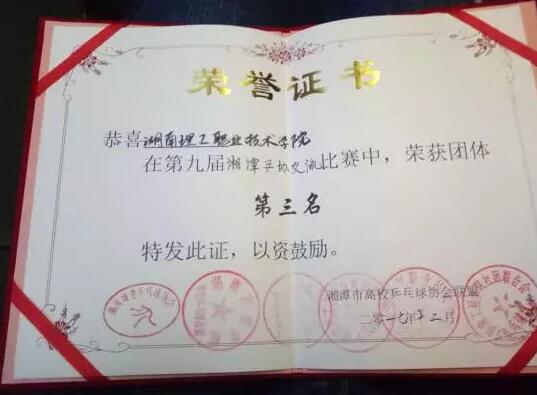 荣誉证书
恭喜湖南理工职业技术学院
在第九届湘潭乒协交流比赛中，荣获团体
第三名
特发此证，以资鼓励。
湘潭市高校乒乓球协会联盟
二零一七年十二月